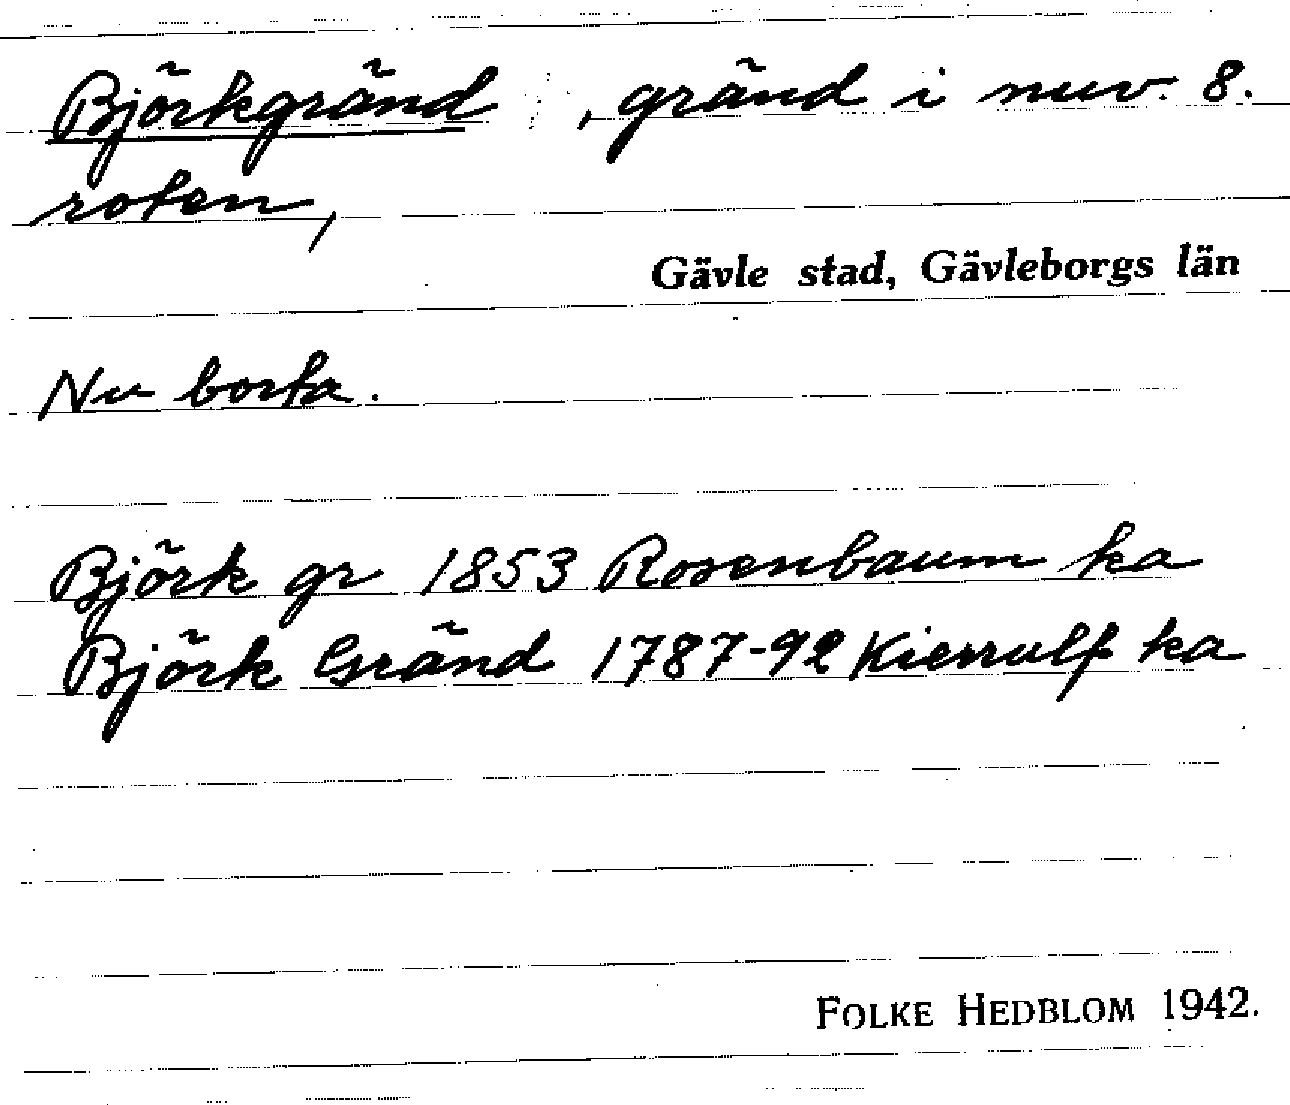 Björkgränd, gränd i nuv. 8.
roten,
Gävle stad, Gävleborgs län
Nu borta.
Björk gr 1853 Rosenbaum ka
Björk Gränd 1787-92 Kierrulf ka
FOLKE HEDBLOM 1942.